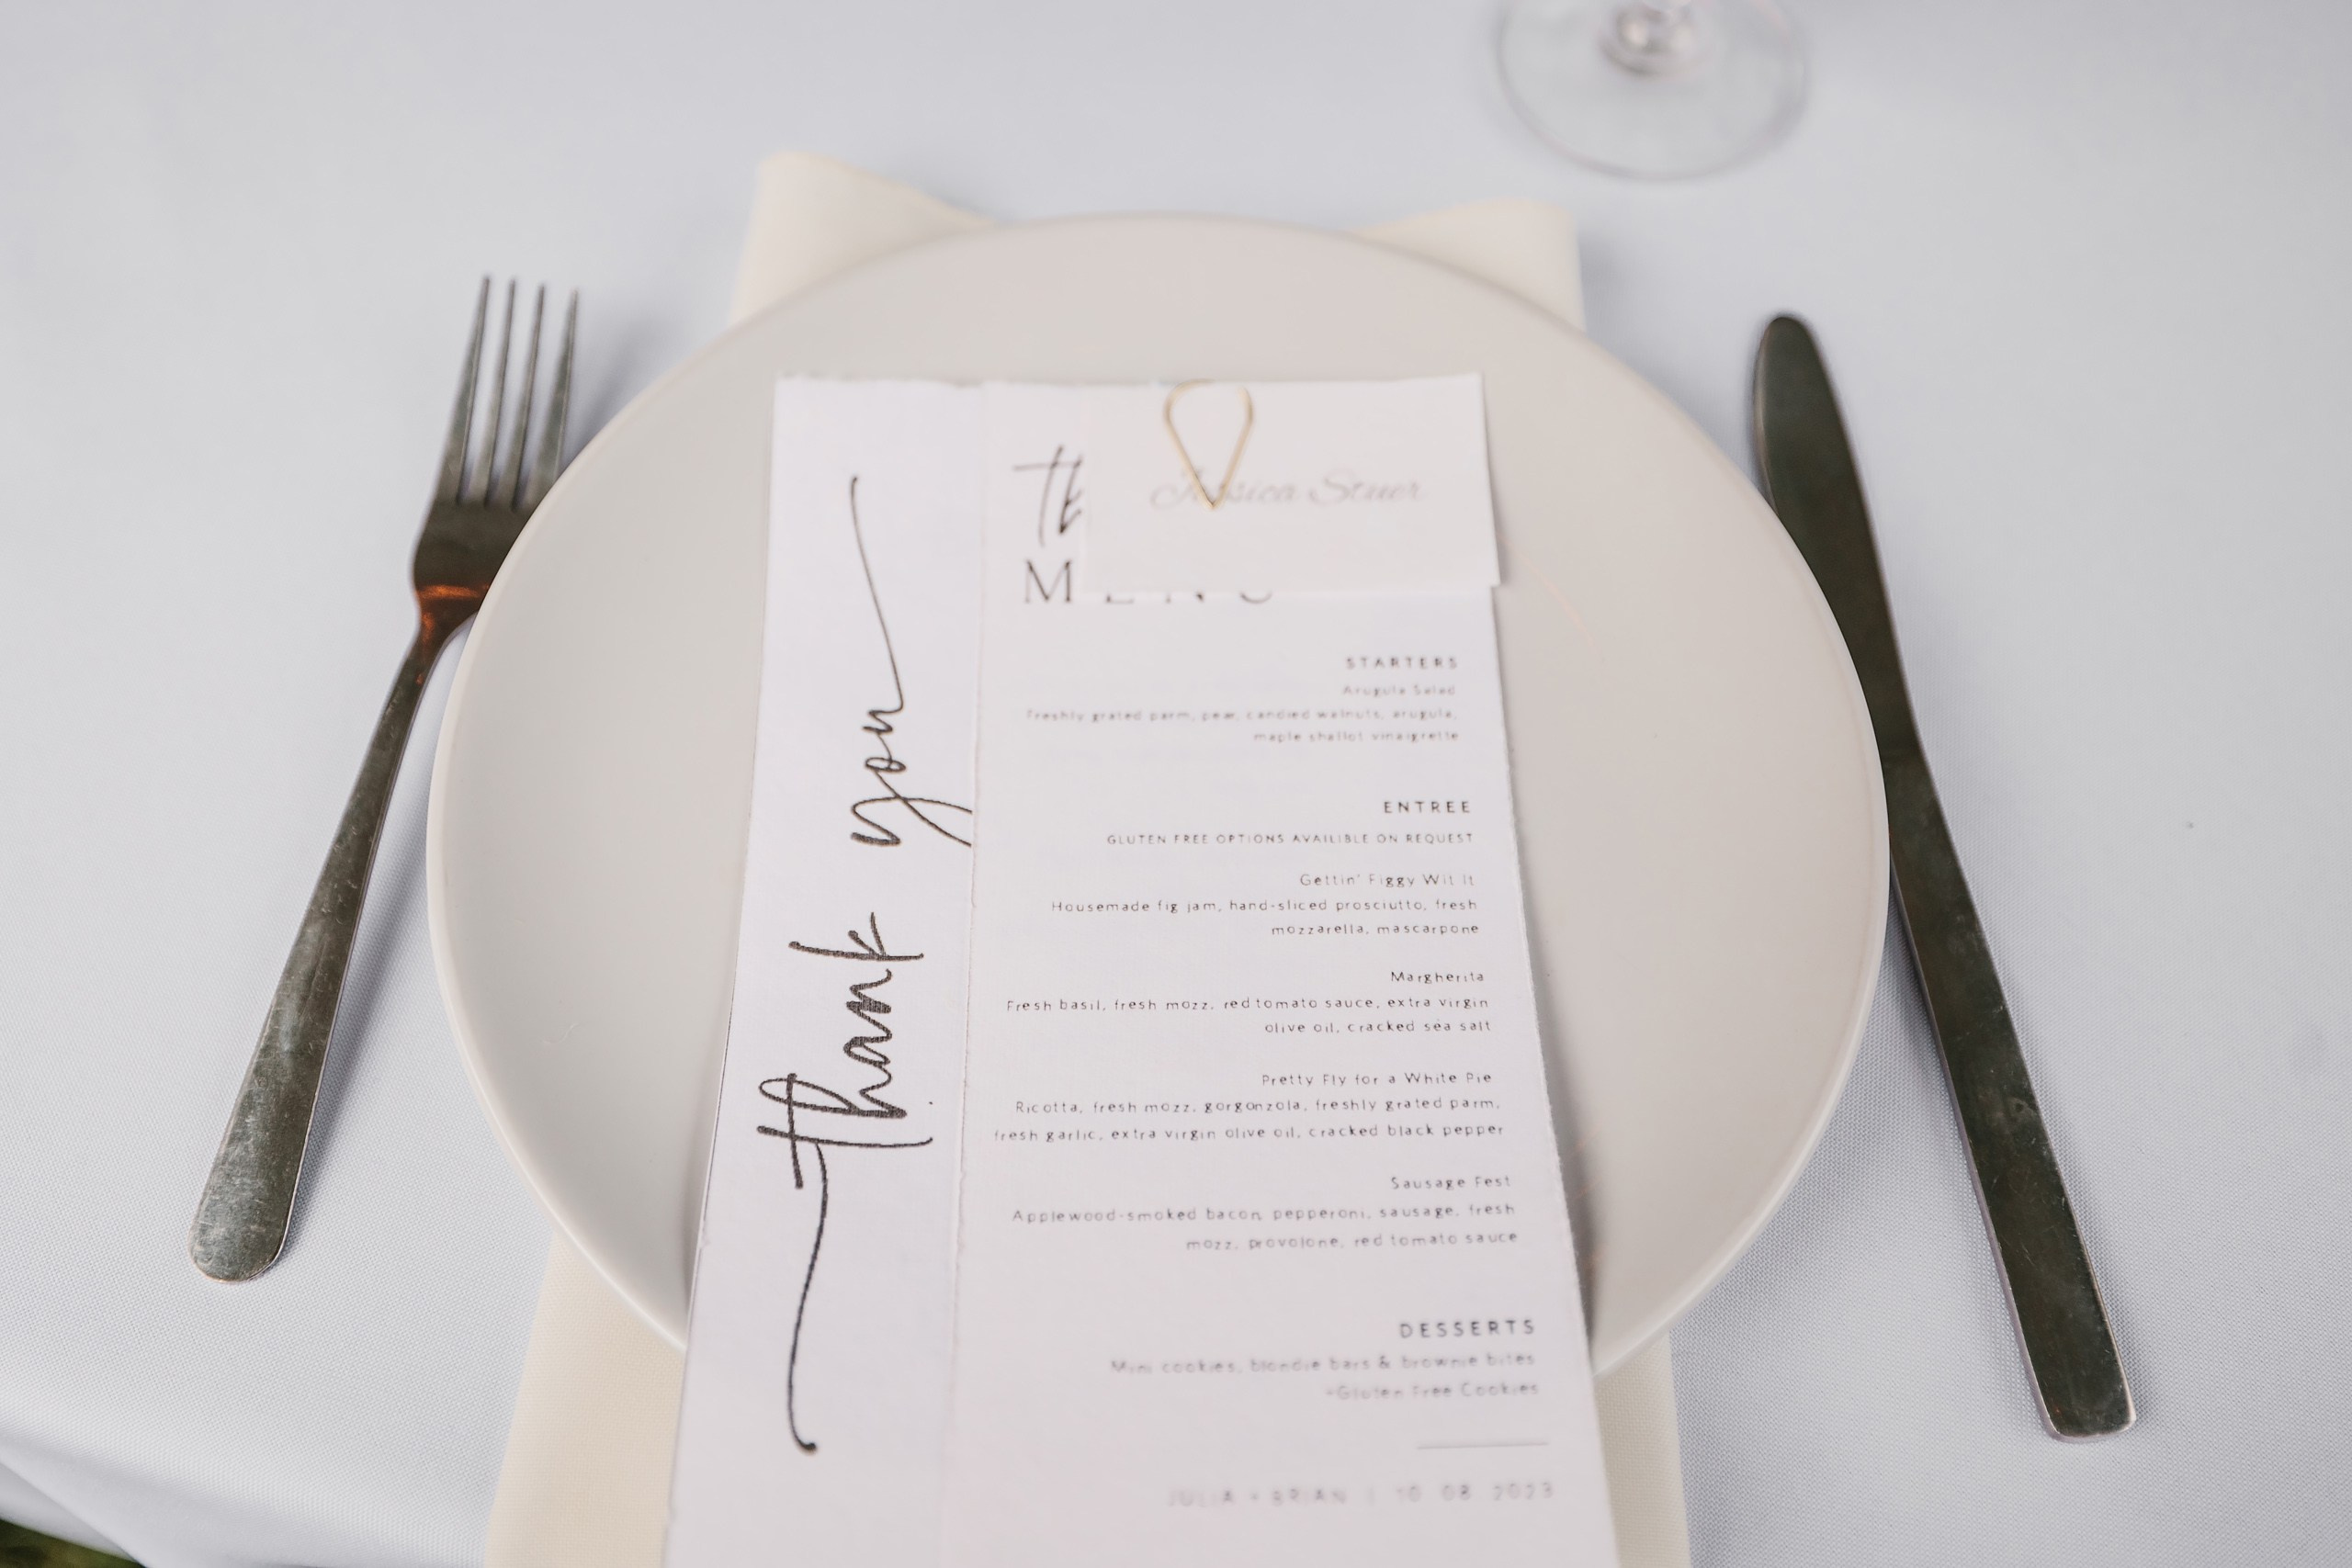 thank you
th
MENU
Jessica Stuer
STARTERS
Arugula Salad
Freshly grated parm, pear, candied walnuts, arugula,
maple shallot vinaigrette
ENTREE
GLUTEN FREE OPTIONS AVAILIBLE ON REQUEST
Gettin' Figgy Wit It
Housemade fig jam, hand-sliced prosciutto, fresh
mozzarella, mascarpone
Margherita
Fresh basil, fresh mozz, red tomato sauce, extra virgin
olive oil, cracked sea salt
Pretty Fly for a White Pie
Ricotta, fresh mozz, gorgonzola, freshly grated parm,
fresh garlic, extra virgin olive oil, cracked black pepper
Sausage Fest
Applewood-smoked bacon, pepperoni, sausage, fresh
mozz, provolone, red tomato sauce
DESSERTS
Mini cookies, blondie bars & brownie bites
-Gluten Free Cookies
JULIA + BRIAN | 10 08 2023